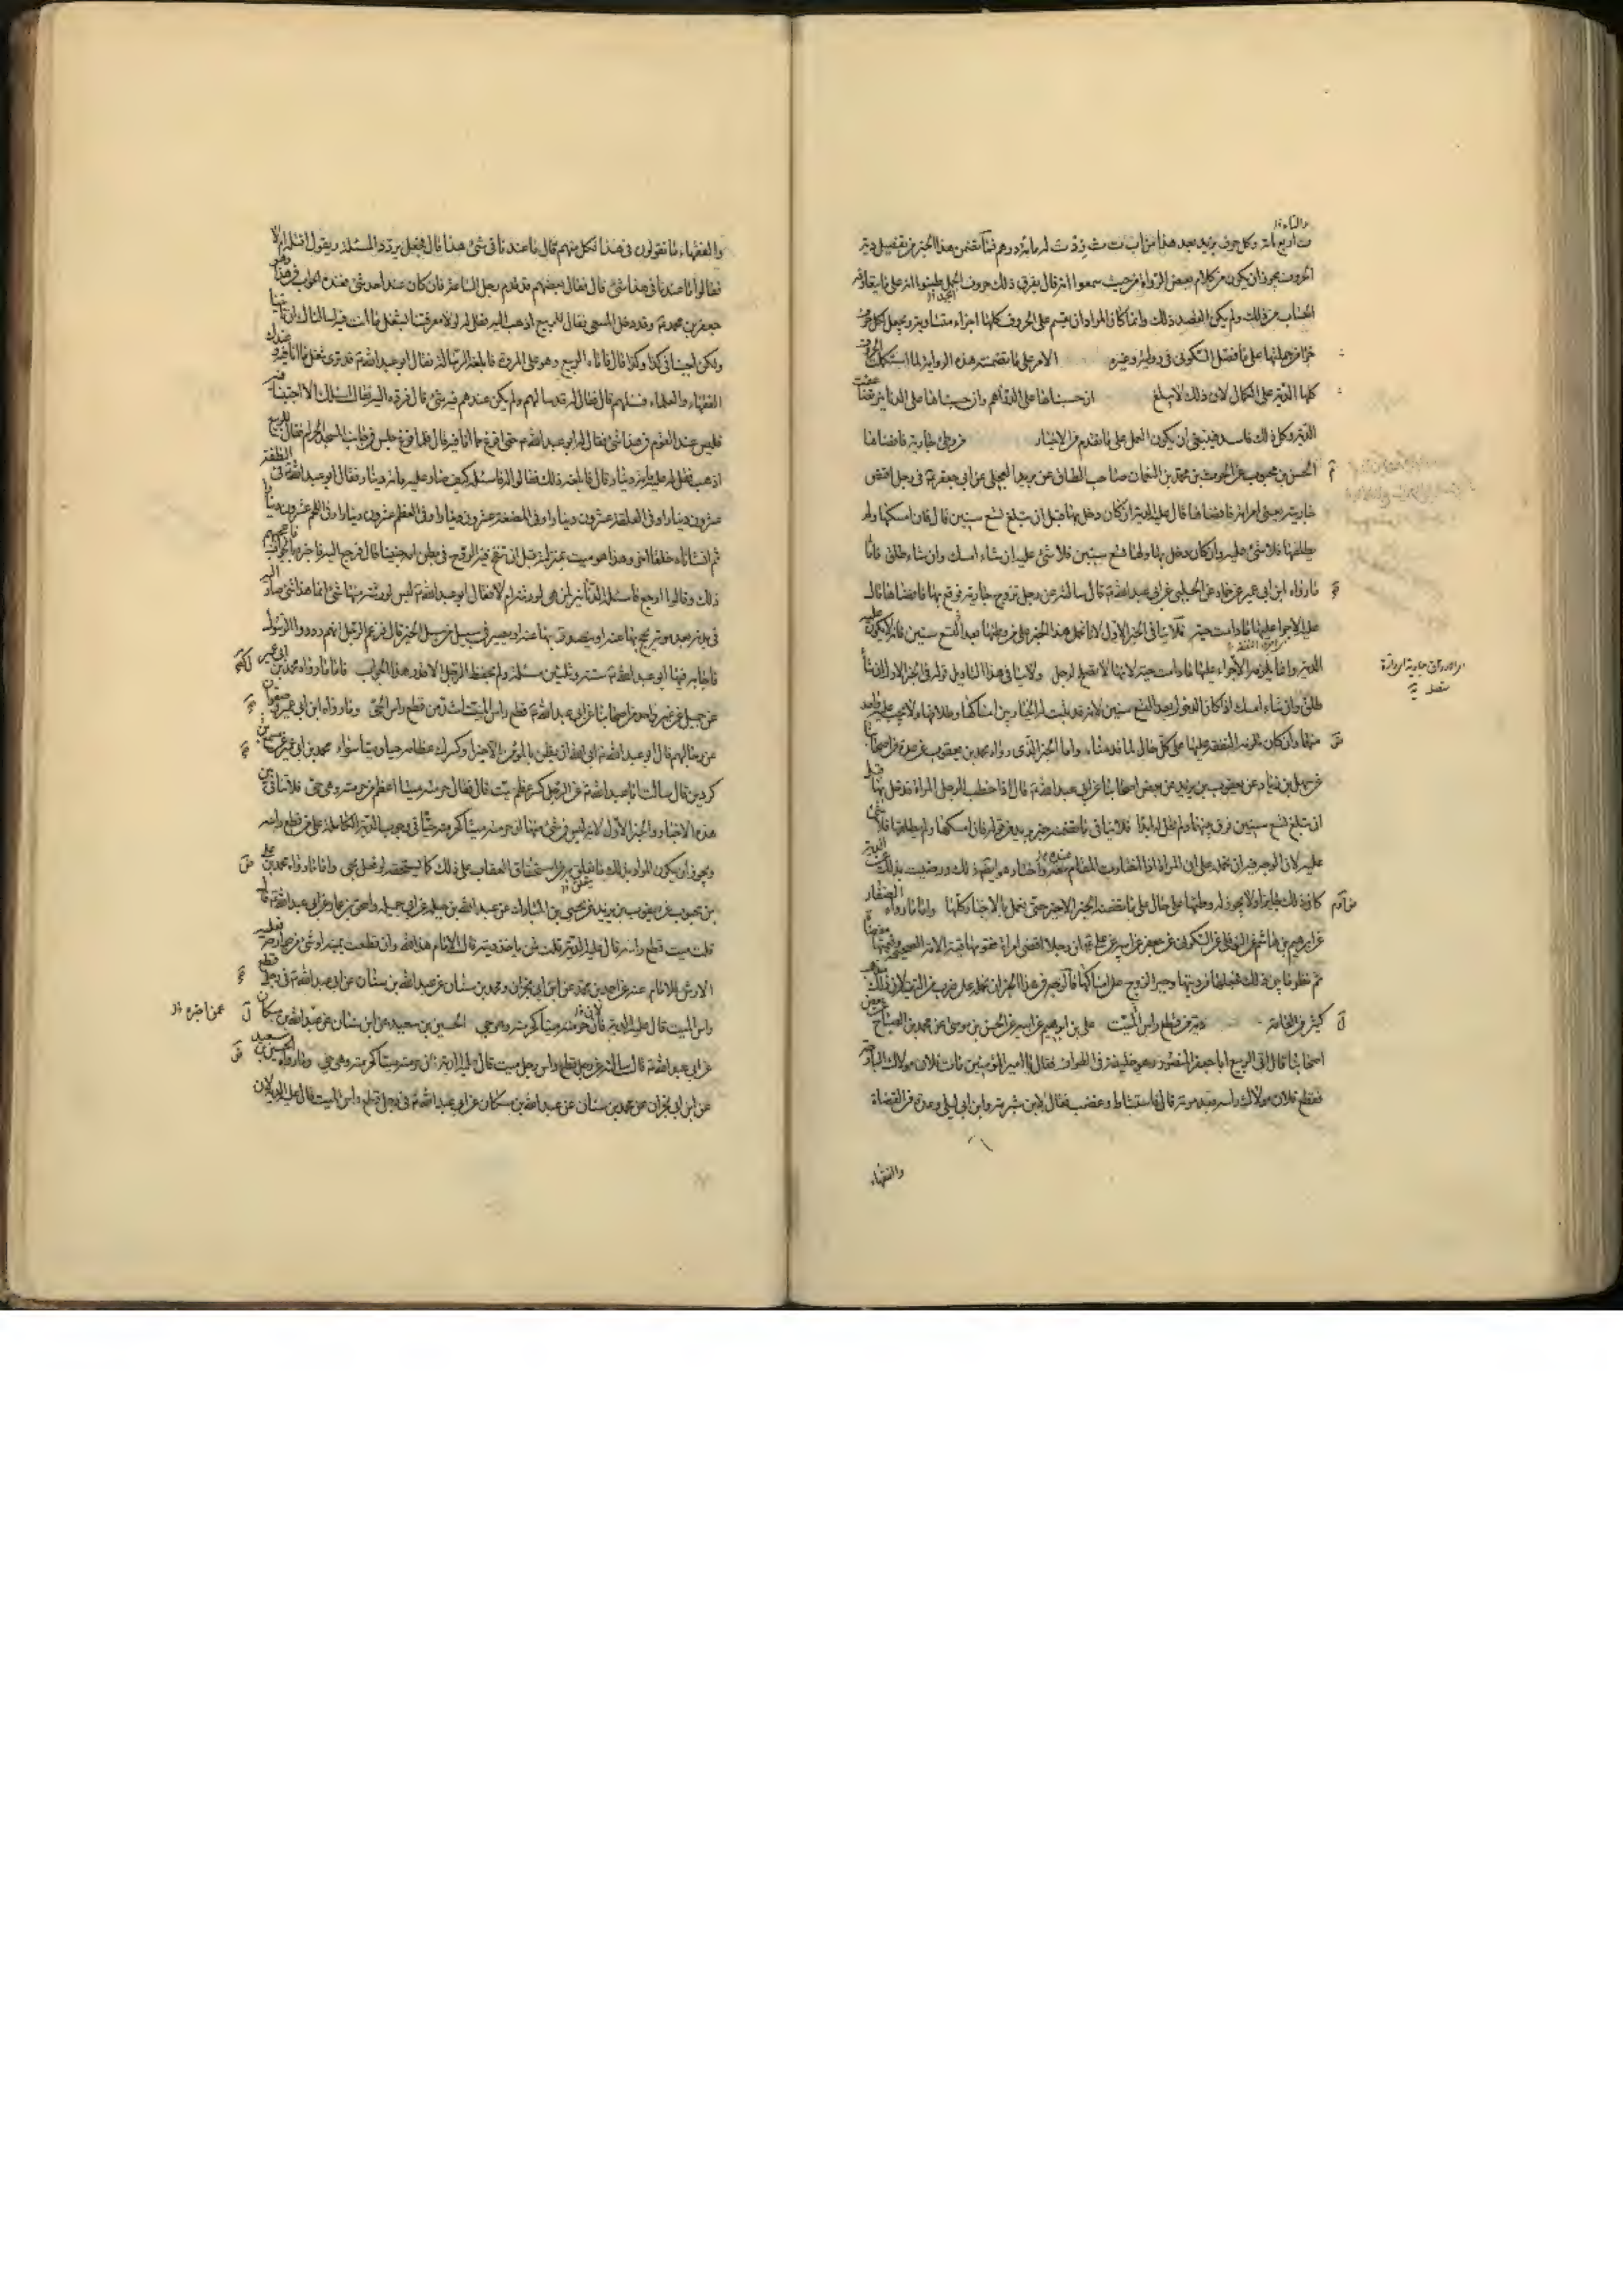 ت اربع مائة وكل حرف يزيد بعد هذا من اب ت ث زدت له مائة درهم فما تضمن هذا الخبر من تفصيل دية
الحروف يجوز ان يكون من كلام بعض الرواة من حيث سمعوا انه قال يفرق ذلك على حروف الجمل ظنوا انه على ما يتعارفه
الحساب من ذلك ولم يكن القصد ذلك وانما كان المراد ان يقسم على الحروف كلها اجزاء متساوية ويجعل لكل حرف
جزء من جملتها على ما فصل السكونى فى روايته وغيره الامر على ما تضمنت هذه الرواية لما استكملت الحروف
كلها الدية على الكمال لان ذلك لا يبلغ ان حسبناها على الدراهم وان حسبناها على الدنانير تضاعفت
الدية وكل ذلك فاسد فينبغى ان يكون العمل على ما تقدم من الاخبار من وطى جارية فافضاها
الحسن بن محبوب عن الحرث بن محمد بن النعمان صاحب الطاق عن بريد العجلى عن ابى جعفر فى رجل افتض
جاريته يعنى امراته فافضاها قال عليه الدية ان كان دخل بها قبل ان تبلغ تسع سنين قال فان امسكها ولم
يطلقها فلا شئ عليه وان كان دخل بها ولها تسع سنين فلا شئ عليه ان شاء امسك وان شاء طلق فاما
ما رواه ابن ابى عمير عن حماد عن الحلبى عن ابى عبد الله قال سالته عن رجل تزوج جارية فوقع بها فافضاها قال
عليه الاجراء عليها ما دامت حية فلا ينافى الخبر الاول لانا نحمل هذا الخبر على من وطئها بعد التسع سنين فانه لا يكون عليه
الدية وانما يلزمه الاجراء عليها ما دامت حية لانها لا تصلح لرجل ولا ينافى هذا التاويل قوله فى الخبر الاول ان شاء
طلق وان شاء امسك اذا كان الدخول بعد التسع سنين لانه قد ثبت له الخيار بين امساكها وطلاقها ولا يجب عليه واحد
منهما وان كان يلزمه النفقة عليها على كل حال لما قدمناه واما الخبر الذى رواه محمد بن يعقوب عن عدة من اصحابنا
عن سهل بن زياد عن يعقوب بن يزيد عن بعض اصحابنا عن ابى عبد الله قال اذا خطب الرجل المراة فدخل بها قبل
ان تبلغ تسع سنين فرق بينهما ولم تحل له ابدا فلا ينافى ما تضمنه خبر بريد من قوله فان امسكها ولم يطلقها فلا شئ
كان ذلك جايزا ولا يجوز له وطئها على حال على ما تضمنه الخبر الاخير حتى نعمل بالاخبار كلها واما ما رواه الصفار
عن ابراهيم بن هاشم عن النوفلى عن السكونى عن جعفر عن ابيه عن على ان رجلا افضى امراة فقومها قيمة الامة الصحيحة وقيمتها مفضاة
ثم نظر ما بين ذلك فجعلها من ديتها وجبر الزوج على امساكها فالوجه فى هذا الخبر ان نحمله على ضرب من التقية لان ذلك مذهب
كثير من العامة دية من قطع راس الميت على بن ابراهيم عن ابيه عن الحسن بن موسى عن محمد بن الصباح عن بعض
اصحابنا قال اتى الربيع ابا جعفر المنصور وهو خليفة فى الطواف فقال يا امير المؤمنين مات فلان مولاك البارحة
فقطع فلان مولاك راسه بعد موته قال فاستشاط وغضب فقال لابن شبرمة وابن ابى ليلى وعدة من القضاة
والفقهاء
والفقهاء ما تقولون فى هذا فكل منهم قال ما عندنا فى شئ هذا قال فجعل يردد المسئلة ويقول اقتله ام لا
فقالوا ما عندنا فى هذا شئ قال فقال بعضهم قد قدم رجل الساعة فان كان عند احد شئ فعنده الجواب فى هذا وهو
جعفر بن محمد وقد دخل المسعى فقال للربيع اذهب اليه فقل له لولا معرفتنا بشغل ما انت فيه لسالناك ان تاتينا
ولكن اجبنا فى كذا وكذا قال فاتاه الربيع وهو على المروة فابلغه الرسالة فقال ابو عبد الله قد ترى شغل ما انا فيه وقبلك
الفقهاء والعلماء فسلهم قال فقال له قد سالهم ولم يكن عندهم فيه شئ قال فرده اليه فقال اسالك الا اجبتنا فيه
فليس عند القوم فى هذا شئ فقال له ابو عبد الله حتى افرغ مما انا فيه قال فلما فرغ جلس فى جانب المسجد الحرام فقال للربيع
اذهب فقل له عليه مائة دينار قال فابلغه ذلك فقالوا له فاسئله كيف صار عليه مائة دينار فقال ابو عبد الله فى النطفة
عشرون دينارا وفى العلقة عشرون دينارا وفى المضغة عشرون دينارا وفى العظم عشرون دينارا وفى اللحم عشرون دينارا
ثم انشاناه خلقا اخر وهذا هو ميت بمنزلته قبل ان تنفخ فيه الروح فى بطن امه جنينا قال فرجع اليه فاخبره بالجواب فاعجبهم
ذلك وقالوا ارجع فاسئله الدنانير لمن هى لورثته ام لا فقال ابو عبد الله ليس لورثته منها شئ انما هذا شئ صار اليه
فى بدنه بعد موته يحج بها عنه او يتصدق بها عنه او يصير فى سبيل من سبل الخير قال فزعم الرجل انهم ردوا الرسول
فاجاب فيها ابو عبد الله بستة وثلثين مسئلة ولم يحفظ الرجل الا قدر هذا الجواب فاما ما رواه محمد بن ابى عمير
عن جميل عن غير واحد من اصحابنا عن ابى عبد الله قال قطع راس الميت اشد من قطع راس الحى وما رواه ابن ابى عمير
كردين قال سالت ابا عبد الله عن الرجل كسر عظم ميت قال فقال حرمته ميتا اعظم من حرمته وهو حى فلا تنافى بين
هذه الاخبار والخبر الاول لانه ليس فى شئ منها ان حرمته ميتا كحرمته حيا فى وجوب الدية الكاملة على من قطع راسه
ويجوز ان يكون المراد بذلك ما يتعلق به من استحقاق العقاب على ذلك كما يستحقه لو فعل بحى واما ما رواه محمد بن على
بن محبوب عن يعقوب بن يزيد عن يحيى بن المبارك عن عبد الله بن جبلة عن ابى جميلة واسحق بن عمار عن ابى عبد الله قال
قلت ميت قطع راسه قال عليه الدية قلت من ياخذ ديته قال الامام هذا لله وان قطعت يمينه او شئ من جوارحه فعليه
الارش للامام عنه عن احمد بن محمد عن ابن ابى نجران ومحمد بن سنان عن عبد الله بن سنان عن ابى عبد الله فى رجل قطع
راس الميت قال عليه الدية لان حرمته ميتا كحرمته وهو حى الحسين بن سعيد عن ابن سنان عن عبد الله بن مسكان
عن ابى عبد الله قال سالته عن رجل قطع راس رجل ميت قال عليه الدية فان حرمته ميتا كحرمته وهو حى وما رواه الحسين بن سعيد
عن ابن ابى نجران عن محمد بن سنان عن عبد الله بن مسكان عن ابى عبد الله فى رجل قطع راس الميت قال عليه الدية لان
عمن اخبره